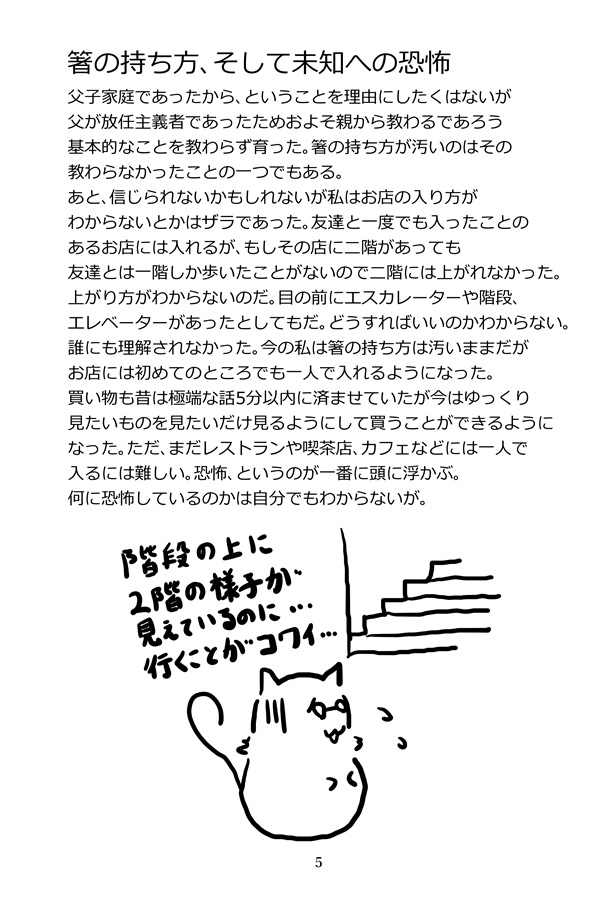 箸の持ち方、そして未知への恐怖
父子家庭であったから、ということを理由にしたくはないが
父が放任主義者であったためおよそ親から教わるであろう
基本的なことを教わらず育った。箸の持ち方が汚いのはその
教わらなかったことの一つでもある。
あと、信じられないかもしれないが私はお店の入り方が
わからないとかはザラであった。友達と一度でも入ったことの
あるお店には入れるが、もしその店に二階があっても
友達とは一階しか歩いたことがないので二階には上がれなかった。
上がり方がわからないのだ。目の前にエスカレーターや階段、
エレベーターがあったとしてもだ。どうすればいいのかわからない。
誰にも理解されなかった。今の私は箸の持ち方は汚いままだが
お店には初めてのところでも一人で入れるようになった。
買い物も昔は極端な話5分以内に済ませていたが今はゆっくり
見たいものを見たいだけ見るようにして買うことができるように
なった。ただ、まだレストランや喫茶店、カフェなどには一人で
入るには難しい。恐怖、というのが一番に頭に浮かぶ。
何に恐怖しているのかは自分でもわからないが。
階段の上に
2階の様子が
見えているのに…
行くことがコワイ…
5